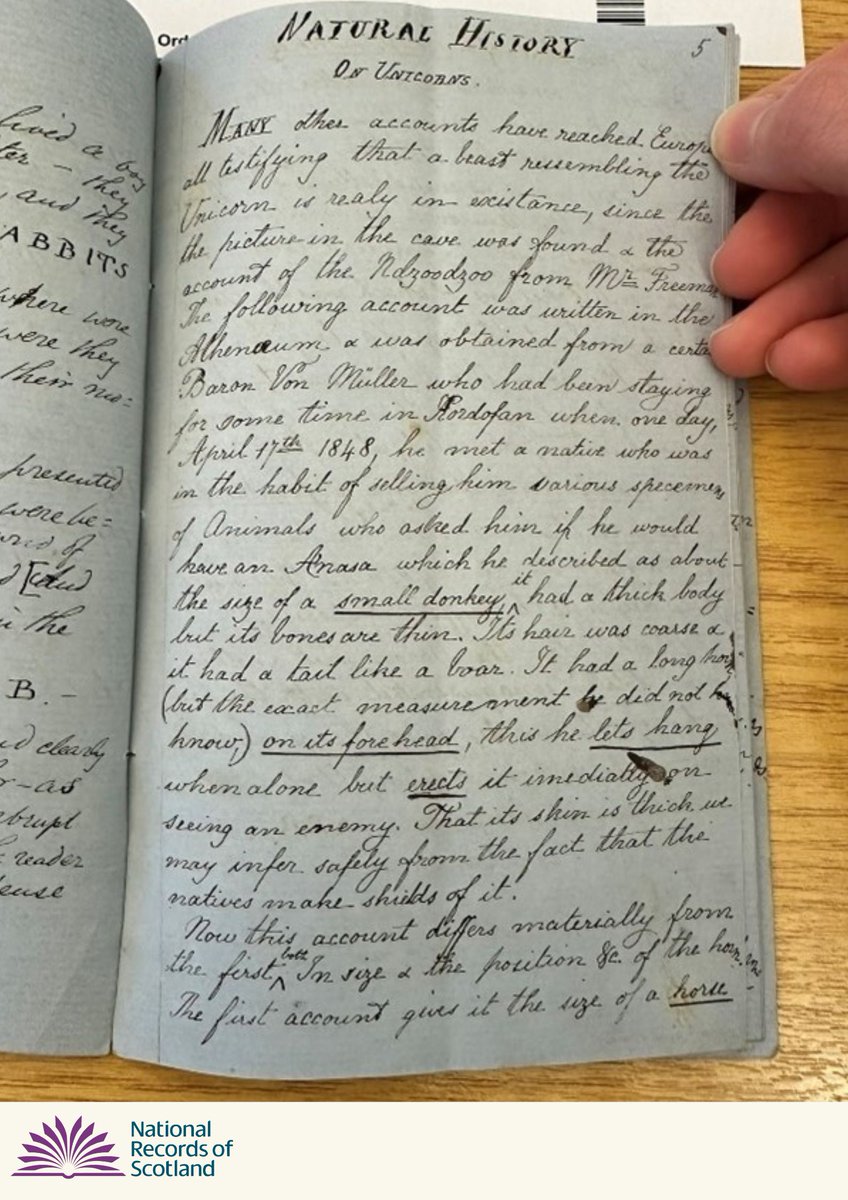 lived a boy
ter – they
, and they
ABBITS
where were
were they
their mo=
presented
were be=
in the
B. –
clearly
r – as
brupt
reader
ense
Ord
NATURAL HISTORY
5
ON UNICORNS.
MANY other accounts have reached Europe
all testifying that a beast ressembling the
Unicorn is realy in existance, since the
the picture in the cave was found & the
account of the Ndzoodzoo from Mr Freeman
The following account was written in the
Athenaeum & was obtained from a certa
Baron Von Müller who had been staying
for some time in Kordofan when one day,
April 17th 1848, he met a native who was
in the habit of selling him various specemens
of Animals who asked him if he would
have an Anasa which he described as about
the size of a small donkey, it had a thick body
but its bones are thin. Its hair was coarse &
it had a tail like a boar. It had a long horn
(but the exact measurement he did not
know,) on its forehead, this he lets hang
when alone but erects it imediatly on
seeing an enemy. That its skin is thick we
may infer safely from the fact that the
natives make shields of it.
Now this account differs materially from
the first both In size & the position &c. of the horn.
The first account gives it the size of a horse
National
Records of
Scotland